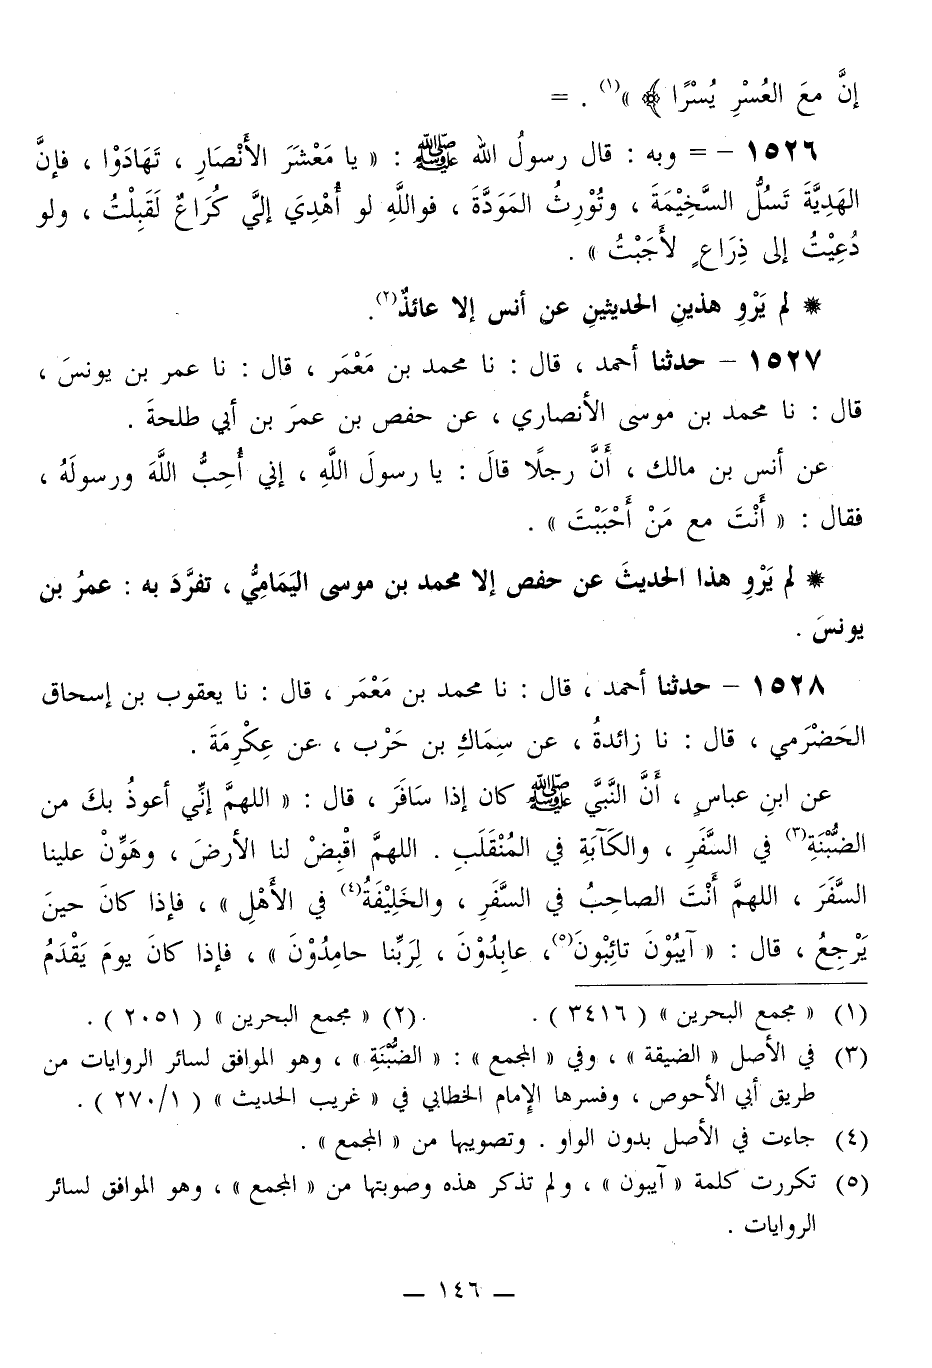 إنَّ معَ العُسْرِ يُسْرًا ﴾ »(١) . =
١٥٢٦ – = وبه : قال رسولُ الله ﷺ : « يا مَعْشَرَ الأَنْصَارِ ، تَهَادَوْا ، فإنَّ
الهَدِيَّةَ تَسُلُّ السَّخِيْمَةَ ، وتُوْرِثُ المَوَدَّةَ ، فواللَّهِ لو أُهْدِيَ إليَّ كُرَاعٌ لَقَبِلْتُ ، ولو
دُعِيْتُ إلى ذِرَاعٍ لأَجَبْتُ » .
* لم يَرْوِ هذينِ الحديثينِ عن أنس إلا عائذٌ(٢).
١٥٢٧ – حدثنا أحمد ، قال : نا محمد بن مَعْمَر ، قال : نا عمر بن يونسَ ،
قال : نا محمد بن موسى الأنصاري ، عن حفص بن عمرَ بن أبي طلحةَ .
عن أنس بن مالك ، أَنَّ رجلًا قالَ : يا رسولَ اللَّهِ ، إني أُحِبُّ اللَّهَ ورسولَهُ ،
فقال : « أَنْتَ مع مَنْ أَحْبَبْتَ » .
* لم يَرْوِ هذا الحديثَ عن حفص إلا محمد بن موسى اليَمَامِيُّ ، تفرَّدَ به : عمرُ بن
يونسَ .
١٥٢٨ – حدثنا أحمد ، قال : نا محمد بن مَعْمَر ، قال : نا يعقوب بن إسحاق
الحَضْرَمي ، قال : نا زائدةُ ، عن سِمَاكِ بن حَرْب ، عن عِكْرِمَةَ .
عن ابنِ عباسٍ ، أَنَّ النَّبيَّ ﷺ كان إذا سَافَرَ ، قال : « اللهمَّ إنِّي أعوذُ بكَ من
الضُّبْنَةِ(٣) في السَّفَرِ ، والكَآبَةِ في المُنْقَلَبِ . اللهمَّ اقْبِضْ لنا الأرضَ ، وهَوِّنْ علينا
السَّفَرَ ، اللهمَّ أَنْتَ الصاحِبُ في السَّفَرِ ، والخَلِيْفَةُ(٤) في الأَهْلِ » ، فإذا كانَ حينَ
يَرْجِعُ ، قال : « آيبُوْنَ تائِبُونَ(٥)، عابِدُوْنَ ، لِرَبِّنا حامِدُوْنَ » ، فإذا كانَ يومَ يَقْدَمُ
(١) « مجمع البحرين » ( ٣٤١٦ ) . (٢) « مجمع البحرين » ( ٢٠٥١ ) .
(٣) في الأصل « الضيقة » ، وفي « المجمع » : « الضُّبْنَةِ » ، وهو الموافق لسائر الروايات من
طريق أبي الأحوص ، وفسرها الإمام الخطابي في « غريب الحديث » ( ٢٧٠/١ ) .
(٤) جاءت في الأصل بدون الواو . وتصويبها من « المجمع » .
(٥) تكررت كلمة « آيبون » ، ولم تذكر هذه وصوبتها من « المجمع » ، وهو الموافق لسائر
الروايات .
— ١٤٦ —